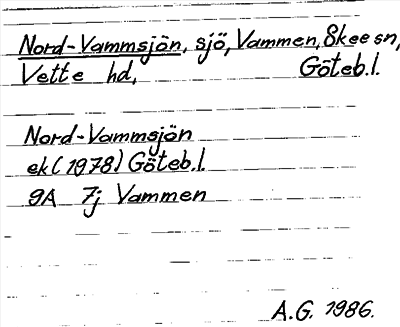 Nord-Vammsjön, sjö, Vammen, Skee sn,
Vette hd, Göteb.l.
Nord-Vammsjön
ek (1978) Göteb.l.
9A 7j Vammen
A.G. 1986.